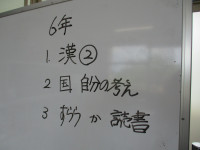 6年
1 漢②
2 国 自分の考え
3 ずこうか 読書